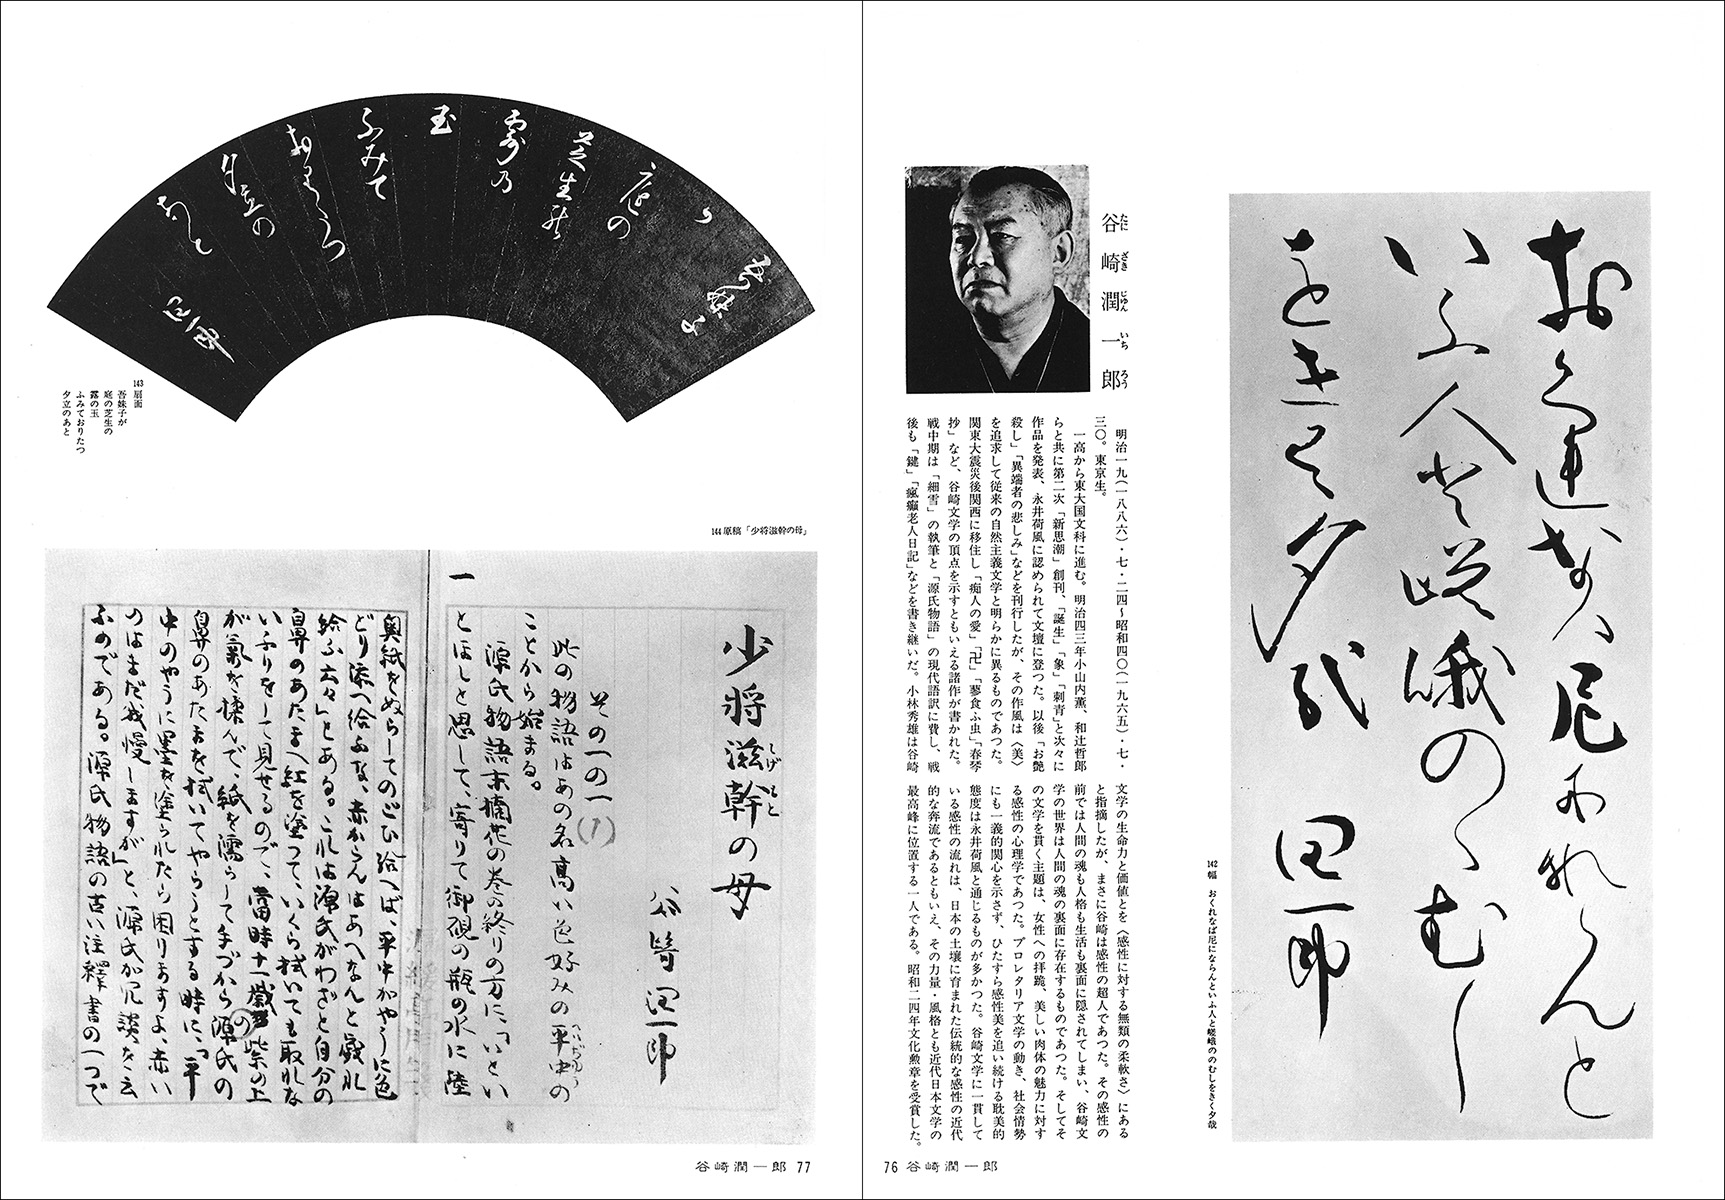 おくれなば尼になれらんと
いふ人と嵯峨のゝむし
をきく夕哉
潤一郎
142 幅 おくれなば尼にならんといふ人と嵯峨ののむしをきく夕哉
谷崎潤一郎
たに ざき じゅん いち ろう
明治一九(一八八六)・七・二四〜昭和四〇(一九六五)・七・
三〇。東京生。
一高から東大国文科に進む。明治四三年小山内薫、和辻哲郎
らと共に第二次「新思潮」創刊、「誕生」「象」「刺青」と次々に
作品を発表、永井荷風に認められて文壇に登つた。以後「お艶
殺し」「異端者の悲しみ」などを刊行したが、その作風は〈美〉
を追求して従来の自然主義文学と明らかに異るものであつた。
関東大震災後関西に移住し「痴人の愛」「卍」「蓼食ふ虫」「春琴
抄」など、谷崎文学の頂点を示すともいえる諸作が書かれた。
戦中期は「細雪」の執筆と「源氏物語」の現代語訳に費し、戦
後も「鍵」「瘋癲老人日記」などを書き継いだ。小林秀雄は谷崎
文学の生命力と価値とを〈感性に対する無類の柔軟さ〉にある
と指摘したが、まさに谷崎は感性の超人であつた。その感性の
前では人間の魂も人格も生活も裏面に隠されてしまい、谷崎文
学の世界は人間の魂の裏面に存在するものであつた。そしてそ
の文学を貫く主題は、女性への拝跪、美しい肉体の魅力に対す
る感性の心理学であつた。プロレタリア文学の動き、社会情勢
にも一義的関心を示さず、ひたすら感性美を追い続ける耽美的
態度は永井荷風と通じるものが多かつた。谷崎文学に一貫して
いる感性の流れは、日本の土壌に育まれた伝統的な感性の近代
的な奔流であるともいえ、その力量・風格とも近代日本文学の
最高峰に位置する一人である。昭和二四年文化勲章を受賞した。
76 谷崎潤一郎
庭の
芝生の
露乃
玉
ふみて
おりたつ
夕立の
あと
潤一郎
143 扇面
吾妹子が
庭の芝生の
露の玉
ふみておりたつ
夕立のあと
144 原稿「少将滋幹の母」
少将滋幹の母
しげ もと
谷崎潤一郎
その一の一(1)
此の物語はあの名高い色好みの平中の
へいぢゆう
ことから始まる。
源氏物語末摘花の巻の終りの方に、「いとい
とほしと思して、寄りて御硯の瓶の水に陸
一
奥紙をぬらしてのごひ給へば、平中がやうに色
どり添へ給ふな、赤からんはあへなんと戯れ
給ふ云々」とある。これは源氏がわざと自分の
鼻のあたまへ紅を塗つて、いくら拭いても取れな
いふりをして見せるので、当時十一歳の紫の上
が気を揉んで、紙を濡らして手づから源氏の
鼻のあたまを拭いてやらうとする時に、「平
中のやうに墨を塗られたら困りますよ、赤い
のはまだ我慢しますが」と、源氏が冗談を云
ふのである。源氏物語の古い注釈書の一つで
谷崎潤一郎 77